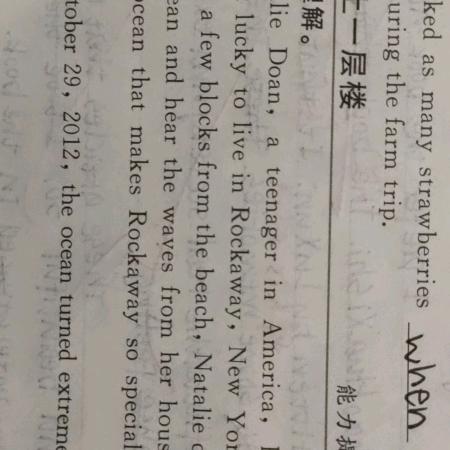 ked as many strawberries when
uring the farm trip.
上一层楼 能力提
解。
lie Doan, a teenager in America,
lucky to live in Rockaway, New Yor
a few blocks from the beach, Natalie
ean and hear the waves from her hous
ocean that makes Rockaway so special
tober 29, 2012, the ocean turned extreme